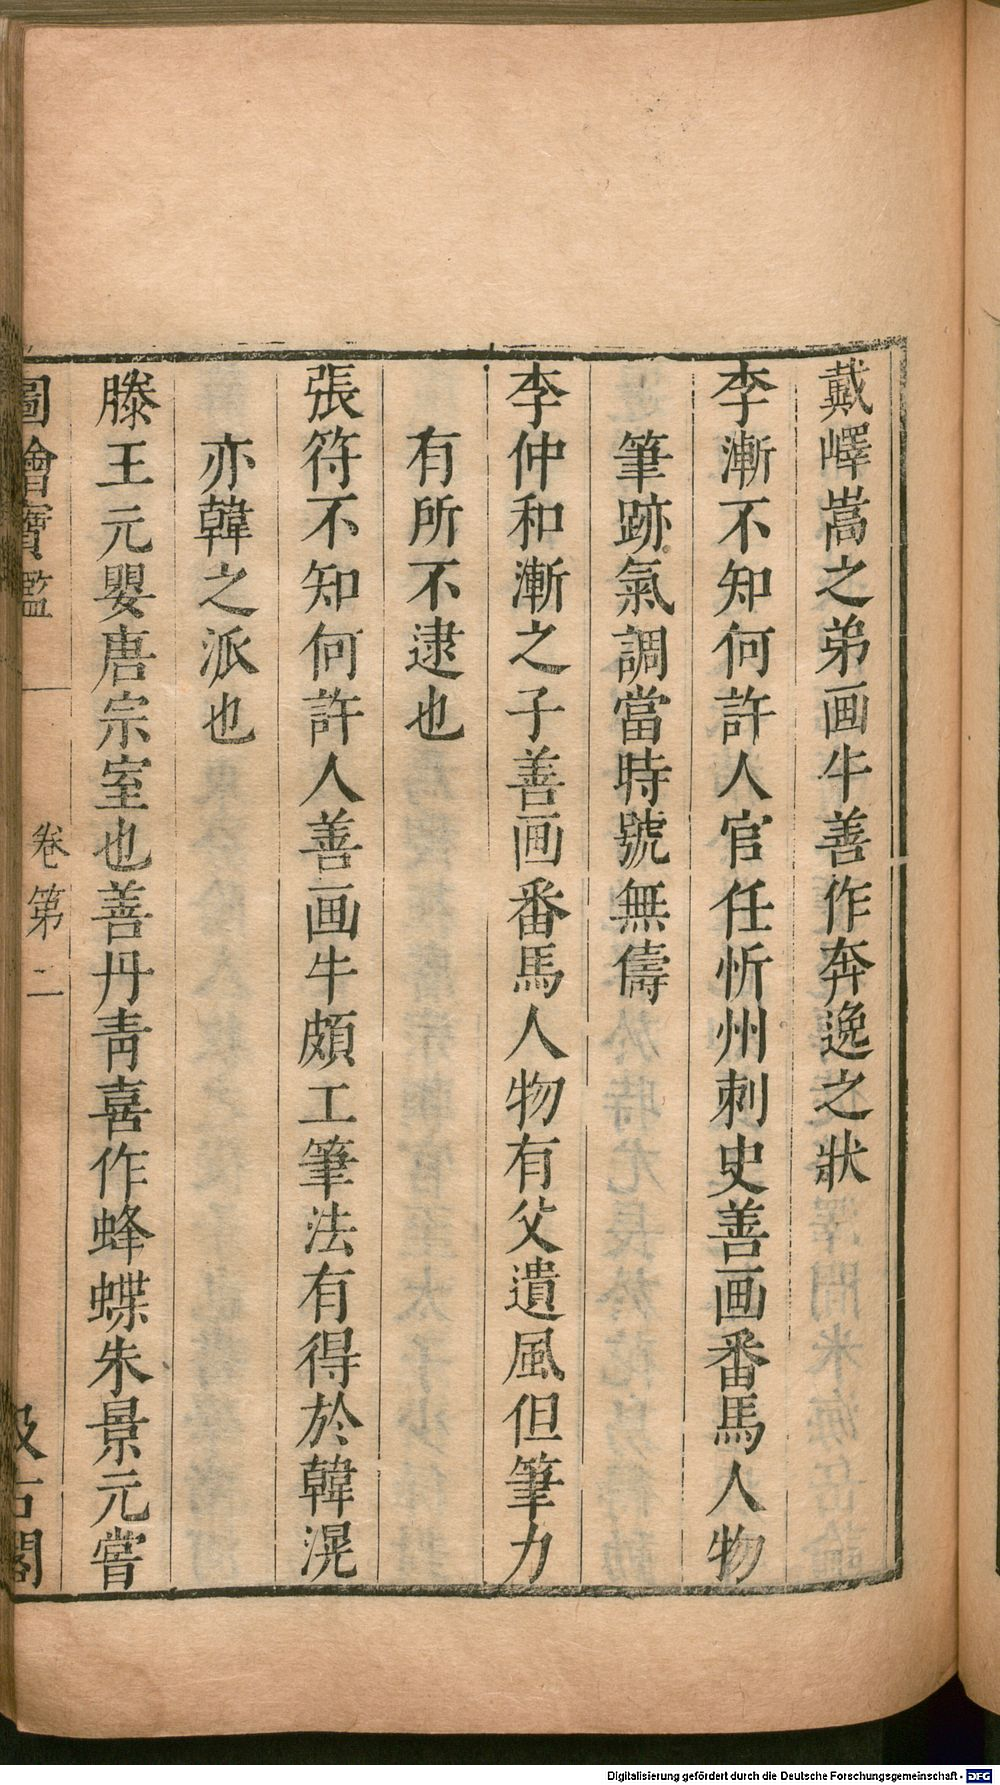 戴嶧嵩之弟画牛善作奔逸之狀
李漸不知何許人官任忻州刺史善画番馬人物
筆跡氣調當時號無儔
李仲和漸之子善画番馬人物有父遺風但筆力
有所不逮也
張符不知何許人善画牛頗工筆法有得於韓滉
亦韓之派也
滕王元嬰唐宗室也善丹靑喜作蜂蝶朱景元嘗
圖繪寶鑑
卷第二
汲古閣
Digitalisierung gefördert durch die Deutsche Forschungsgemeinschaft - DFG